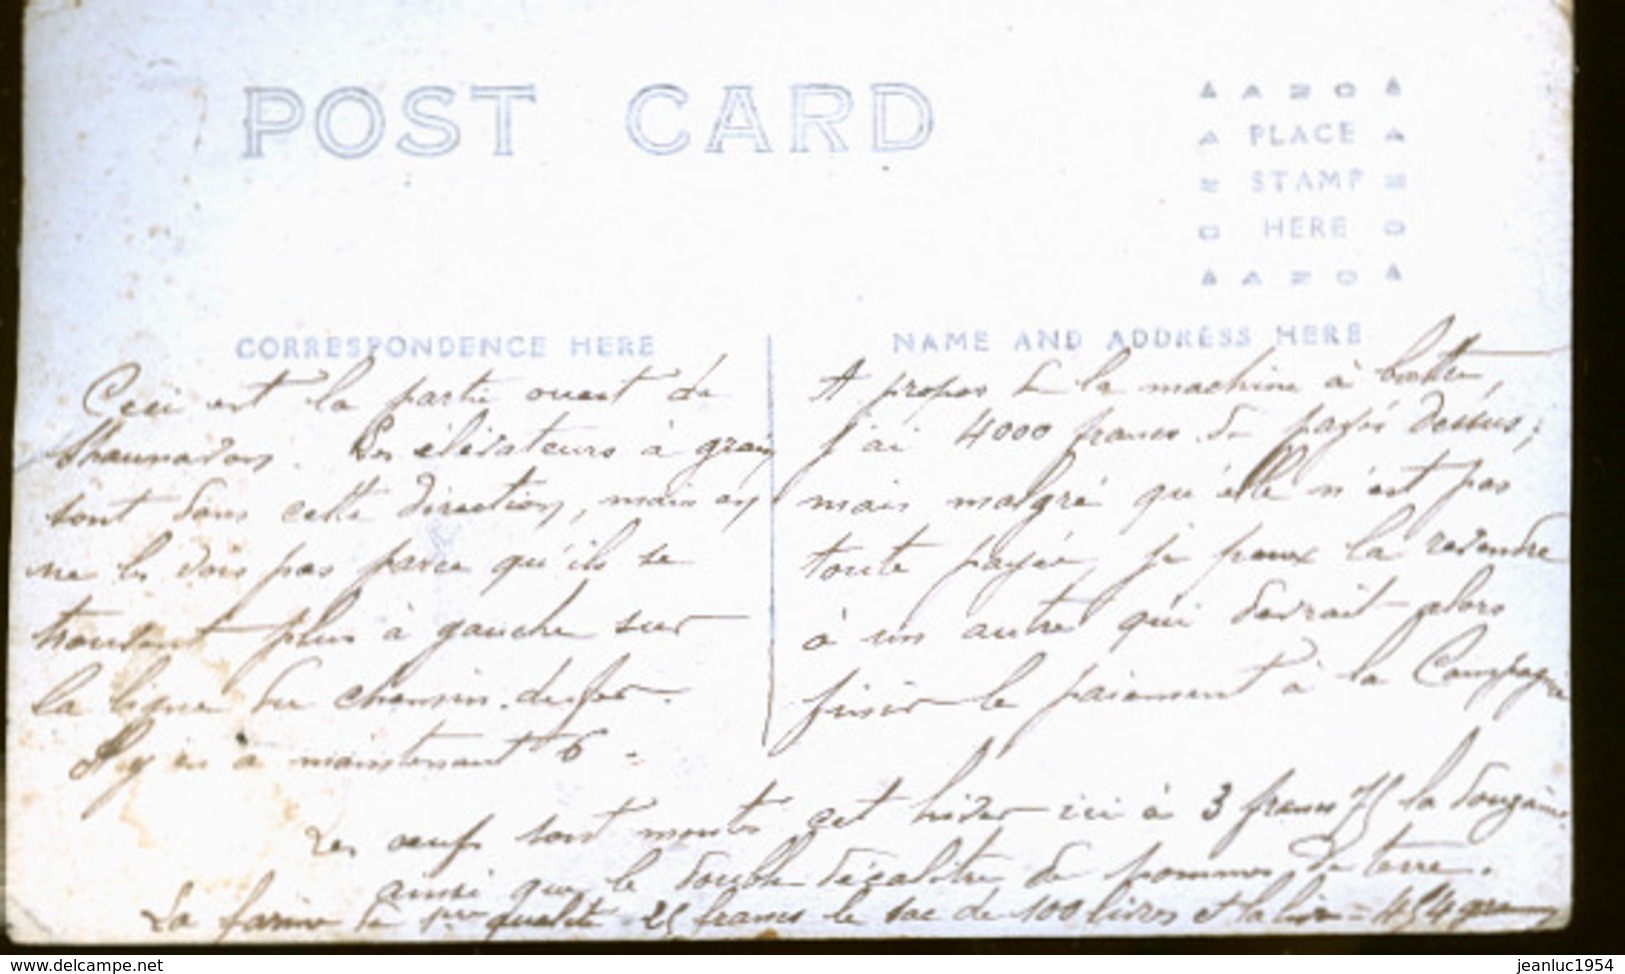 POST CARD
AZO
PLACE
STAMP
HERE
AZO
CORRESPONDENCE HERE
NAME AND ADDRESS HERE
Ceci est la partie ouest de
Shaunavon. Les élévateurs à grain
sont dans cette direction, mais on
ne les vois pas parce qu'ils se
trouvent plus à gauche sur
la ligne du chemin de fer.
Il y en a maintenant 6.
A propos de la machine à battre,
j'ai 4000 francs de payés dessus;
mais malgré qu'elle n'est pas
toute payée, je peux la revendre
à un autre qui devrait alors
finir le paiement à la Compagnie
Les oeufs sont montés cet hiver ici à 3 francs 75 la douzaine
ainsi que le double décalitre de pommes de terre.
La farine de 1ère qualité 25 francs le sac de 100 livres et la livre = 454 grammes
www.delcampe.net
jeanluc1954